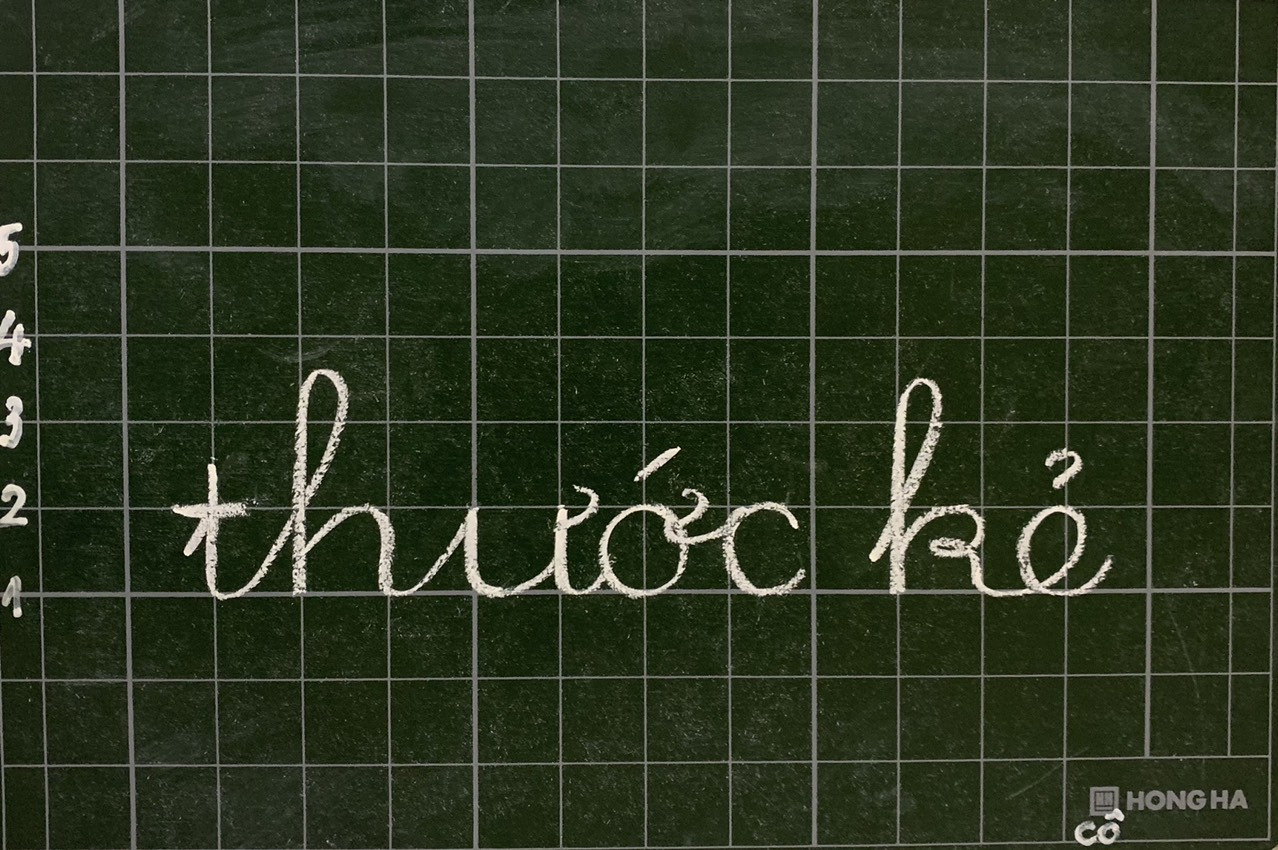 5
4
3
2
1
thước kẻ
HONG HA
cô